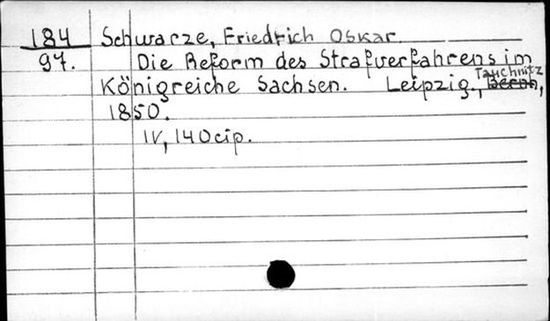 184 Schwarze, Friedrich Oskar.
97. Die Reform des Strafverfahrens im
Königreiche Sachsen. Leipzig, Tauchnitz,
1850.
IV, 140 стр.